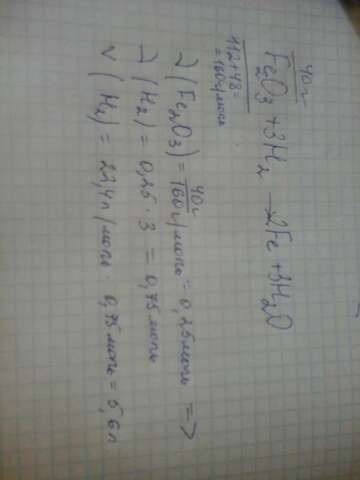 40г
Fe2O3 + 3H2 → 2Fe + 3H2O
112+48=
=160г/моль
ν(Fe2O3) = 40г/160г/моль = 0,25моль =>
ν(H2) = 0,25 · 3 = 0,75моль
V(H2) = 22,4л/моль · 0,75моль = 5,6л